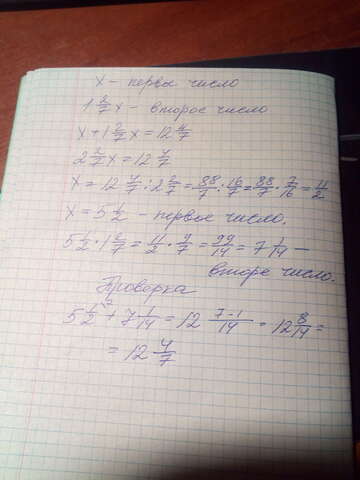 x – первое число
1 2/7 x – второе число
x + 1 2/7 x = 12 4/7
2 2/7 x = 12 4/7
x = 12 4/7 : 2 2/7 = 88/7 : 16/7 = 88/7 · 7/16 = 11/2
x = 5 1/2 – первое число.
5 1/2 · 1 2/7 = 11/2 · 9/7 = 99/14 = 7 1/14 —
второе число.
Проверка
5 1/2 + 7 1/14 = 12 7+1/14 = 12 8/14 =
= 12 4/7